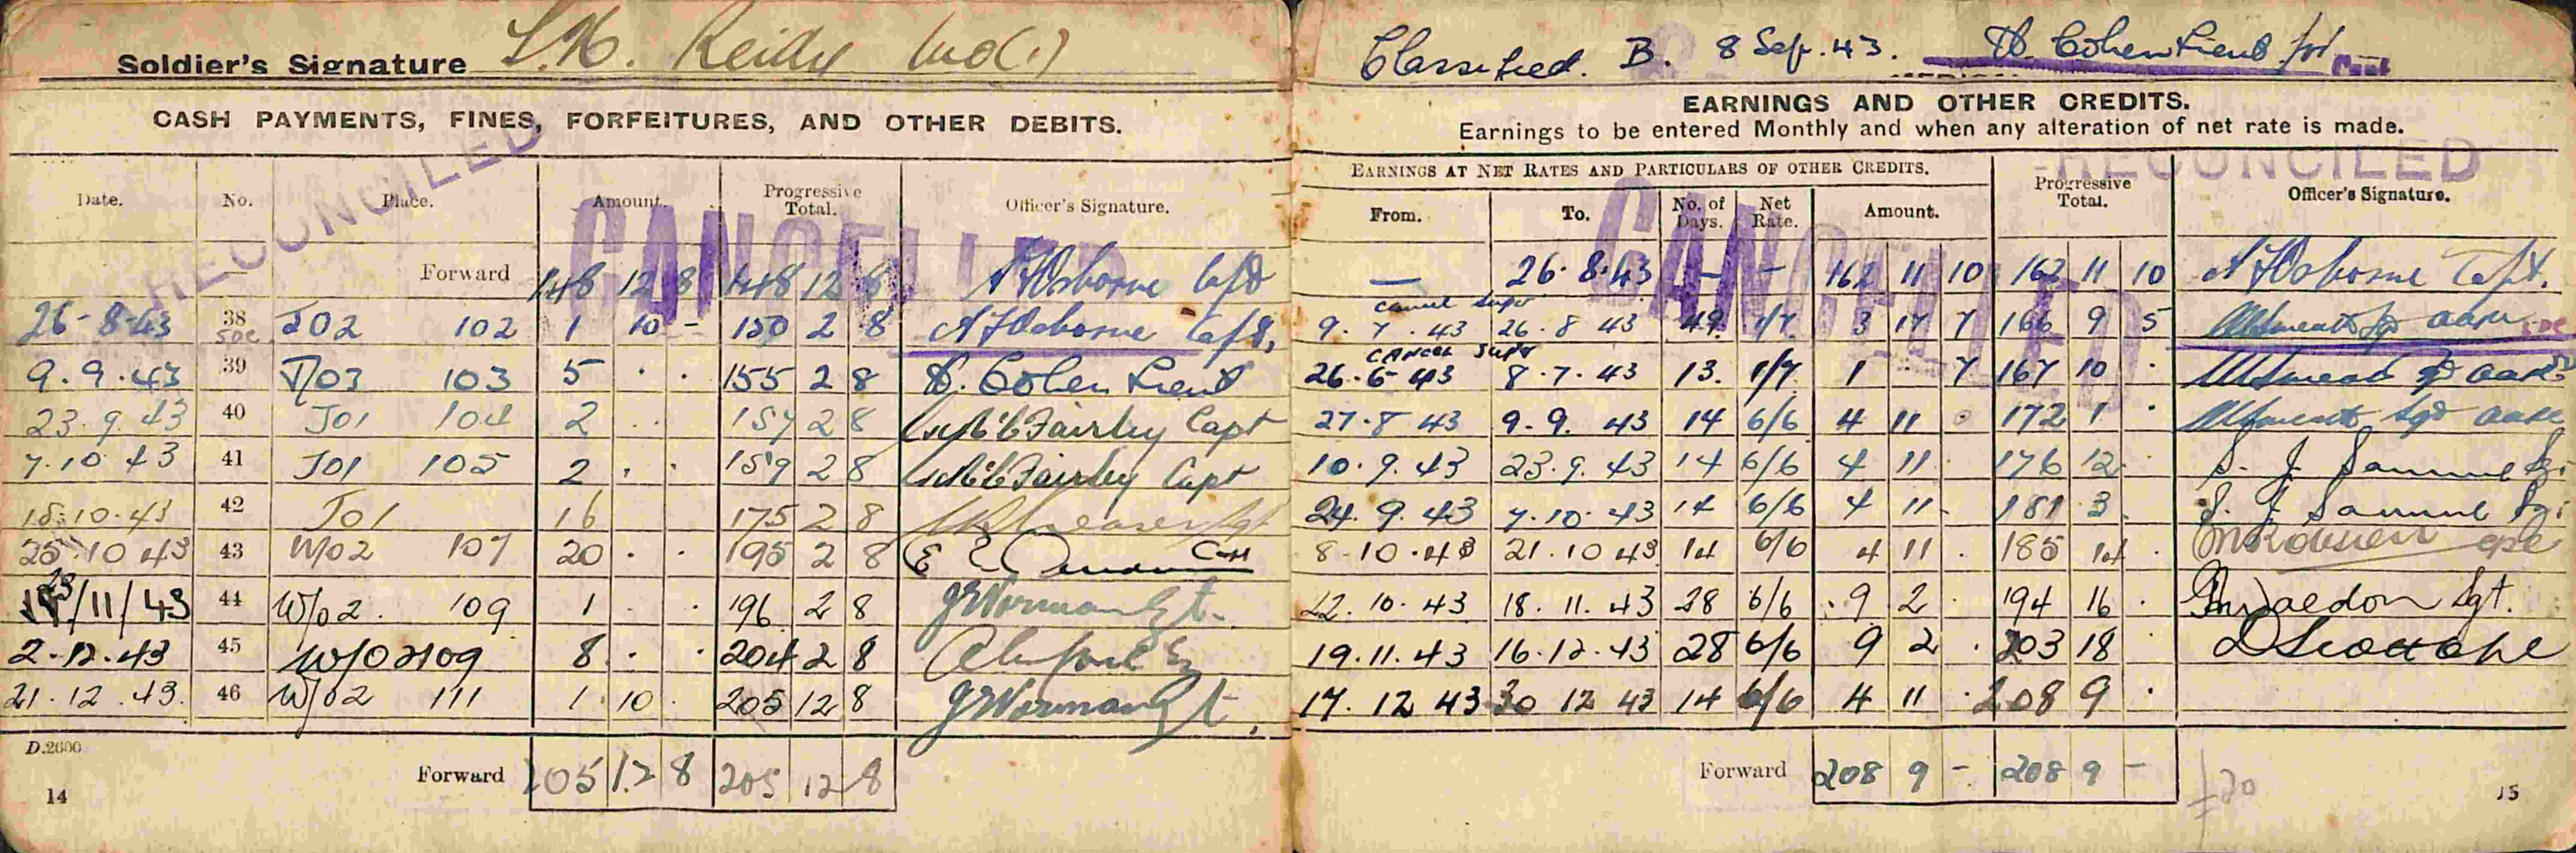 Soldier's Signature L.H. Reidy WO(1)
CASH PAYMENTS, FINES, FORFEITURES, AND OTHER DEBITS.
RECONCILED
CANCELLED
Date. No. Place. Amount. Progressive Total. Officer's Signature.
Forward 148 12 8 148 12 8 A F Osborne Capt
26-8-43 38 J02 102 1 10 - 150 2 8 A F Osborne Capt.
9.9.43 39 J/03 103 5 . . 155 2 8 H. Cohen Lieut
23.9.43 40 J01 104 2 . . 157 2 8 Fairley Capt
7.10.43 41 J01 105 2 . . 159 2 8 Fairley Capt
18.10.43 42 J01 16 175 2 8
25 10 43 43 W02 107 20 . . 195 2 8 Capt
/11/43 44 W/02. 109 1 . . 196 2 8 Norman Sgt.
2.12.43 45 W/02 109 8 . . 204 2 8
21.12.43. 46 W/02 111 1 10 . 205 12 8 Norman Sgt
D.2600
Forward 205 12 8 205 12 8
14
Classified. B. 8 Sep. 43. H. Cohen Lieut for Capt
EARNINGS AND OTHER CREDITS.
Earnings to be entered Monthly and when any alteration of net rate is made.
RECONCILED
CANCELLED
EARNINGS AT NET RATES AND PARTICULARS OF OTHER CREDITS. Progressive Total. Officer's Signature.
From. To. No. of Days. Net Rate. Amount.
— 26.8.43 - - 162 11 10 162 11 10 A F Osborne Capt.
cancel supr
9.7.43 26.8.43 49. 1/7 3 17 7 166 9 5
cancel supr
26.6.43 8.7.43 13. 1/7 1 . 7 167 10 .
27.8.43 9.9.43 14 6/6 4 11 0 172 1 .
10.9.43 23.9.43 14 6/6 4 11 . 176 12 .
24.9.43 7.10.43 14 6/6 4 11 - 181 3 .
8.10.43 21.10.43 14 6/6 4 11 . 185 14 .
22.10.43 18.11.43 28 6/6 9 2 . 194 16 . Sgt.
19.11.43 16.12.43 28 6/6 9 2 . 203 18
17.12.43 30 12 43 14 6/6 4 11 . 208 9 .
Forward 208 9 - 208 9 -
£20
15